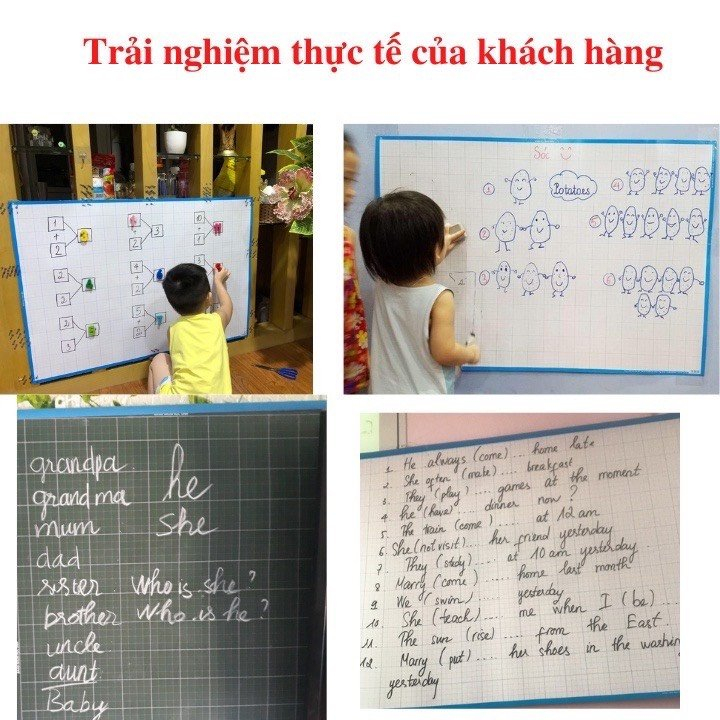 Trải nghiệm thực tế của khách hàng
1
+
2
2
3
2
2
3
4
+
2
5
2
10
-
1
Sóc
1
Potatoes
4
2
5
3
6
grandpa he
grandma
mum she
dad
sister Who is she?
brother Who is he?
uncle
aunt
Baby
1. He always (come) .... home late
2. She often (make) .... breakfast
3. They (play) .... games at the moment
4. he (have) .... dinner now?
5. The train (come) .... at 12 am
6. She (not visit) .... her friend yesterday
7. They (study) .... at 10 am yesterday
8. Marry (come) .... home last month
9. We (swim) .... yesterday
10. She (teach) .... me when I (be) ...
11. The sun (rise) .... from the East
12. Marry (put) .... her shoes in the washin
yesterday